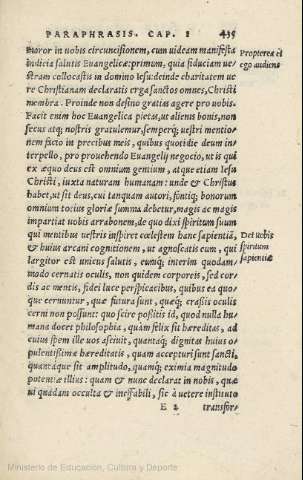 PARAPHRASIS. CAP. I 435
ploror in nobis circuncisionem, cum uideam manifesta
indicia salutis Euangelicæ: primum, quia fiduciam ue-
stram collocastis in domino Iesu: deinde charitatem ue
re Christianam declaratis erga sanctos omnes, Christi
membra. Proinde non desino gratias agere pro uobis.
Facit enim hoc Euangelica pietas, ut alienis bonis, non
secus atq; nostris gratulemur, semperq; uestri mentio-
nem facio in precibus meis, quibus quotidie deum in-
terpello, pro prouehendo Euangelij negocio, ut is qui
ex æquo deus est omnium gentium, atque etiam Iesu
Christi, iuxta naturam humanam: unde & Christus
habet, ut sit deus, cui tanquam autori, fontiq; bonorum
omnium totius gloriæ summa debetur, magis ac magis
impartiat uobis arrabonem, de quo dixi spiritum suum
qui mentibus uestris inspiret cœlestem hanc sapientiã,
& huius arcani cognitionem, ut agnoscatis eum, qui
largitor est unicus salutis, eumq; interim quodam-
modo cernatis oculis, non quidem corporeis, sed cor-
dis ac mentis, fidei luce perspicacibus, quibus ea quo-
que cernuntur, quæ futura sunt, quæq; crassis oculis
cerni non possunt: quo scire possitis id, quod nulla hu-
mana docet philosophia, quàm felix sit hæreditas, ad
cuius spem ille uos asciuit, quantaq; dignitas huius o-
pulentissimæ hæreditatis, quam accepturi sunt sancti,
quantaque sit amplitudo, quamq; eximia magnitudo
potentiæ illius: quam & nunc declarat in nobis, quæ
ui quadam occulta & ineffabili, sic à uetere instituto
E 2 transfor-
Propterea et
ego audiens
Det uobis
spiritum
sapientiæ
Ministerio de Educación, Cultura y Deporte